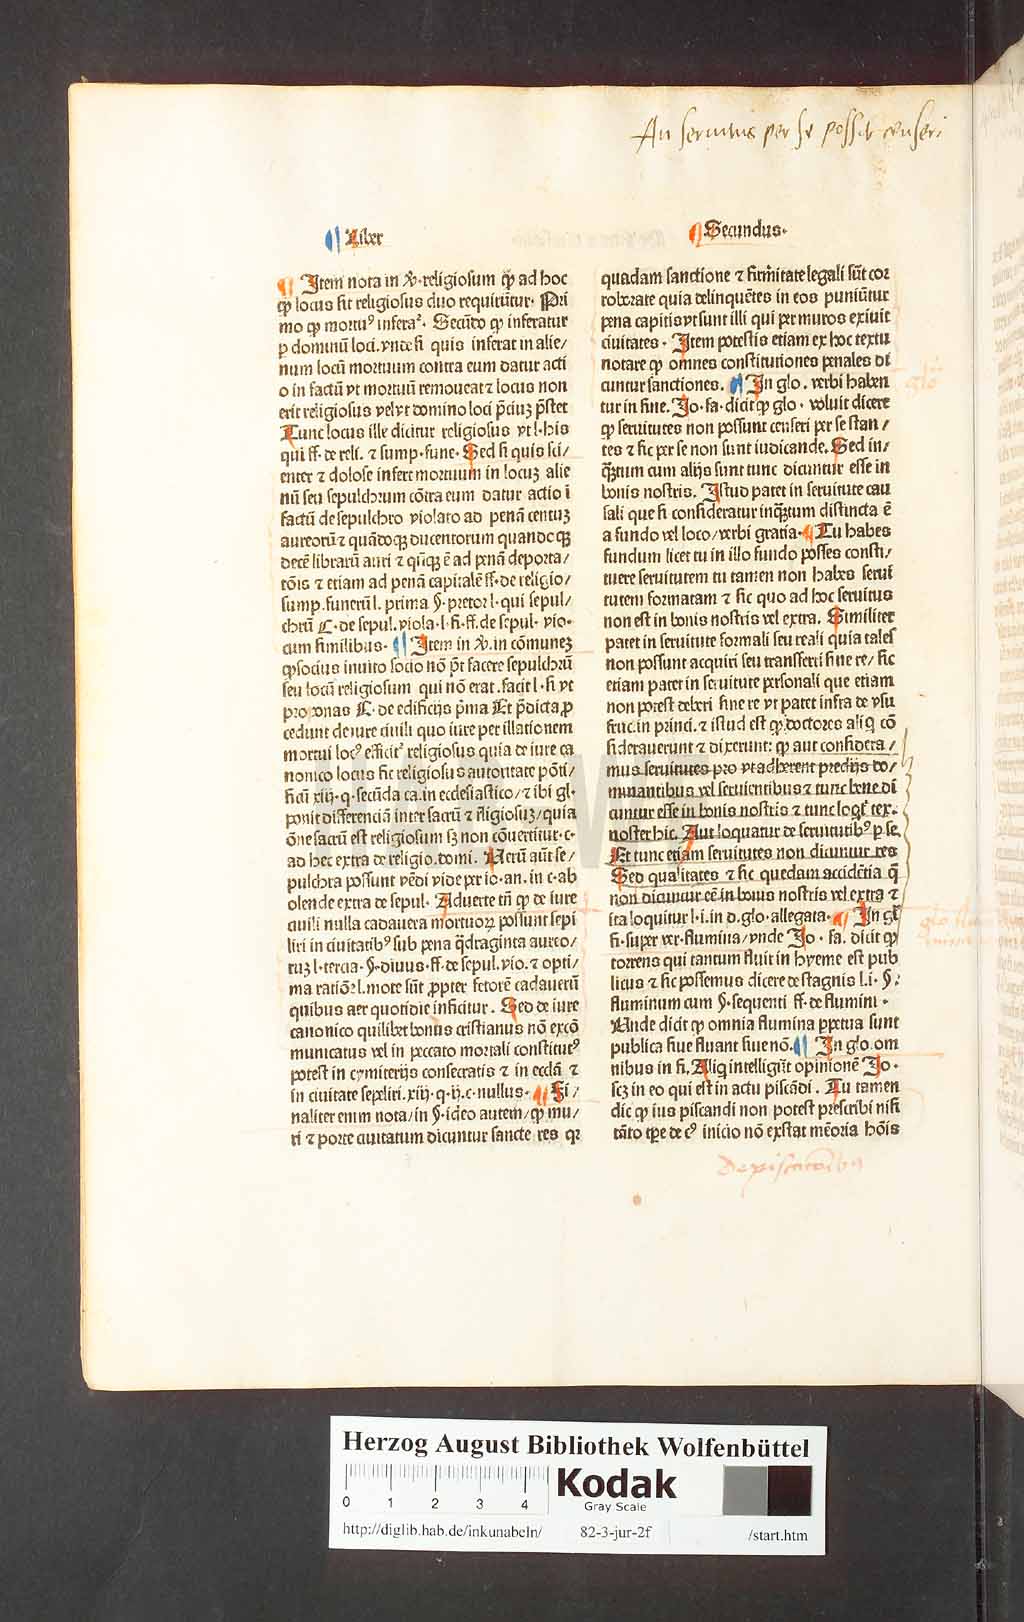 An seruitus per se possit censeri
Liber
Secundus.
Item nota in §. religiosum qp̄ ad hoc
qp̄ locus sit religiosus duo requirūtur. Pri
mo qp̄ mortuꝰ inferaꝶ. Secūdo qp̄ inferatur
p dominū loci. vnde si quis inferat in alie/
num locū mortuum contra eum datur acti
o in factū vt mortuū remoueat ⁊ locus non
erit religiosus vel vt domino loci p̄ciuꝫ p̄stet
Tunc locus ille dicitur religiosus vt l. his
qui ff. de reli. ⁊ sump. fune. Sed si quis sci/
enter ⁊ dolose infert mortuum in locuꝫ alie
nū seu sepulchrum cōtra eum datur actio ī
factū de sepulchro violato ad penā centuꝫ
aureorū ⁊ quādoqꝫ ducentorum quandoqꝫ
decē librarū auri ⁊ qn̄qꝫ ē ad penā deporta/
tōis ⁊ etiam ad penā capitalē ff. de religio/
sump. funerū l. prima §. pretor l. qui sepul/
chrū C. de sepul. viola. l. fi. ff. de sepul. vio.
cum similibus. Item in §. in cōmuneꝫ
qp̄ socius inuito socio nō p̄t facere sepulchrū
seu locū religiosum qui nō erat. facit l. si vt
proponas C. de edificijs p̄ma Et p̄dicta p̱
cedunt de iure ciuili quo iure per illationem
mortui locꝰ efficitꝶ religiosus quia de iure ca
nonico locus fit religiosus autoritate pōti/
ficū xiij. q. secūda ca. in ecclesiastico/ ⁊ ibi gl.
ponit differenciā inter sacrū ⁊ r̄ligiosuꝫ/ quia
ōne sacrū est religiosum sꝫ non cōuertitur. c.
ad hec extra de religio. domi. Uerū aūt se/
pulchra possunt vēdi vide per io. an. in c. ab
olende extra de sepul. Aduerte tn̄ qp̄ de iure
ciuili nulla cadauera mortuoꝝ possunt sepi
liri in ciuitatibꝰ sub pena q̄draginta aureo/
ruꝫ l. tercia. §. diuus. ff. de sepul. vio. ⁊ opti/
ma ratiōꝶ l. more sūt p̱pter fetorē cadauerū
quibus aer quotidie inficitur. Sed de iure
canonico quilibet bonus cristianus nō excō
municatus vel in peccato mortali constitutꝰ
potest in cymiterijs consecratis ⁊ in ecclā ⁊
in ciuitate sepeliri. xiij. q. ij. c. nullus. Fi/
naliter enim nota/ in §. ideo autem/ qp̄ mu/
ri ⁊ porte ciuitatum dicuntur sancte res qꝛ
quadam sanctione ⁊ firmitate legali sūt cor
roborate quia delinquētes in eos puniūtur
pena capitis vt sunt illi qui per muros exiuit
ciuitates. Item potestis etiam ex hoc textu
notare qp̄ omnes constitutiones penales di
cuntur sanctiones. In glo. verbi haben
tur in fine. Jo. fa. dicit qp̄ glo. voluit dicere
qp̄ seruitutes non possunt censeri per se stan/
tes ⁊ sic per se non sunt iudicande. Sed in/
q̄ntum cum alijs sunt tunc dicuntur esse in
bonis nostris. Istud patet in seruitute cau
sali que si consideratur inq̄ntum distincta ē
a fundo vel loco/ verbi gratia. Tu habes
fundum licet tu in illo fundo posses consti/
tuere seruitutem tu tamen non habes serui
tutem formatam ⁊ sic quo ad hoc seruitus
non est in bonis nostris vel extra. Similiter
patet in seruitute formali seu reali quia tales
non possunt acquiri seu transferri sine re/ sic
etiam patet in seruitute personali que etiam
non potest deberi sine re vt patet infra de vsu
fruc. in princi. ⁊ istud est qp̄ doctores aliq cō
siderauerunt ⁊ dixerunt: qp̄ aut considera/
mus seruitutes pro vt adherent predijs do/
minantibus vel seruientibus ⁊ tunc bene di
cuntur esse in bonis nostris ⁊ tunc loq̄t tex.
noster hic. Aut loquatur de seruitutibꝰ p se.
Et tunc etiam seruitutes non dicuntur res
Sed qualitates ⁊ sic quedam accidētia q̄
non dicuntur eē in bonis nostris vel extra ⁊
ita loquitur l. i. in d. glo. allegata. In gl̄
fi. super ver. flumina/ vnde Jo. fa. dicit qp̄
torrens qui tantum fluit in hyeme est pub
licus ⁊ sic possemus dicere de stagnis l. i. §.
fluminum cum §. sequenti ff. de flumini.
Unde dicit qp̄ omnia flumina ppetua sunt
publica siue fluant siue nō. In glo. om
nibus in fi. Aliq intelligūt opinionē Jo.
scꝫ in eo qui est in actu piscādi. Tu tamen
dic qp̄ ius piscandi non potest prescribi nisi
tāto tp̄e de cꝰ inicio nō exstat mēoria hōis
HAB-WF
Herzog August Bibliothek Wolfenbüttel
0 1 2 3 4
Kodak
Gray Scale
http://diglib.hab.de/inkunabeln/ 82-3-jur-2f /start.htm